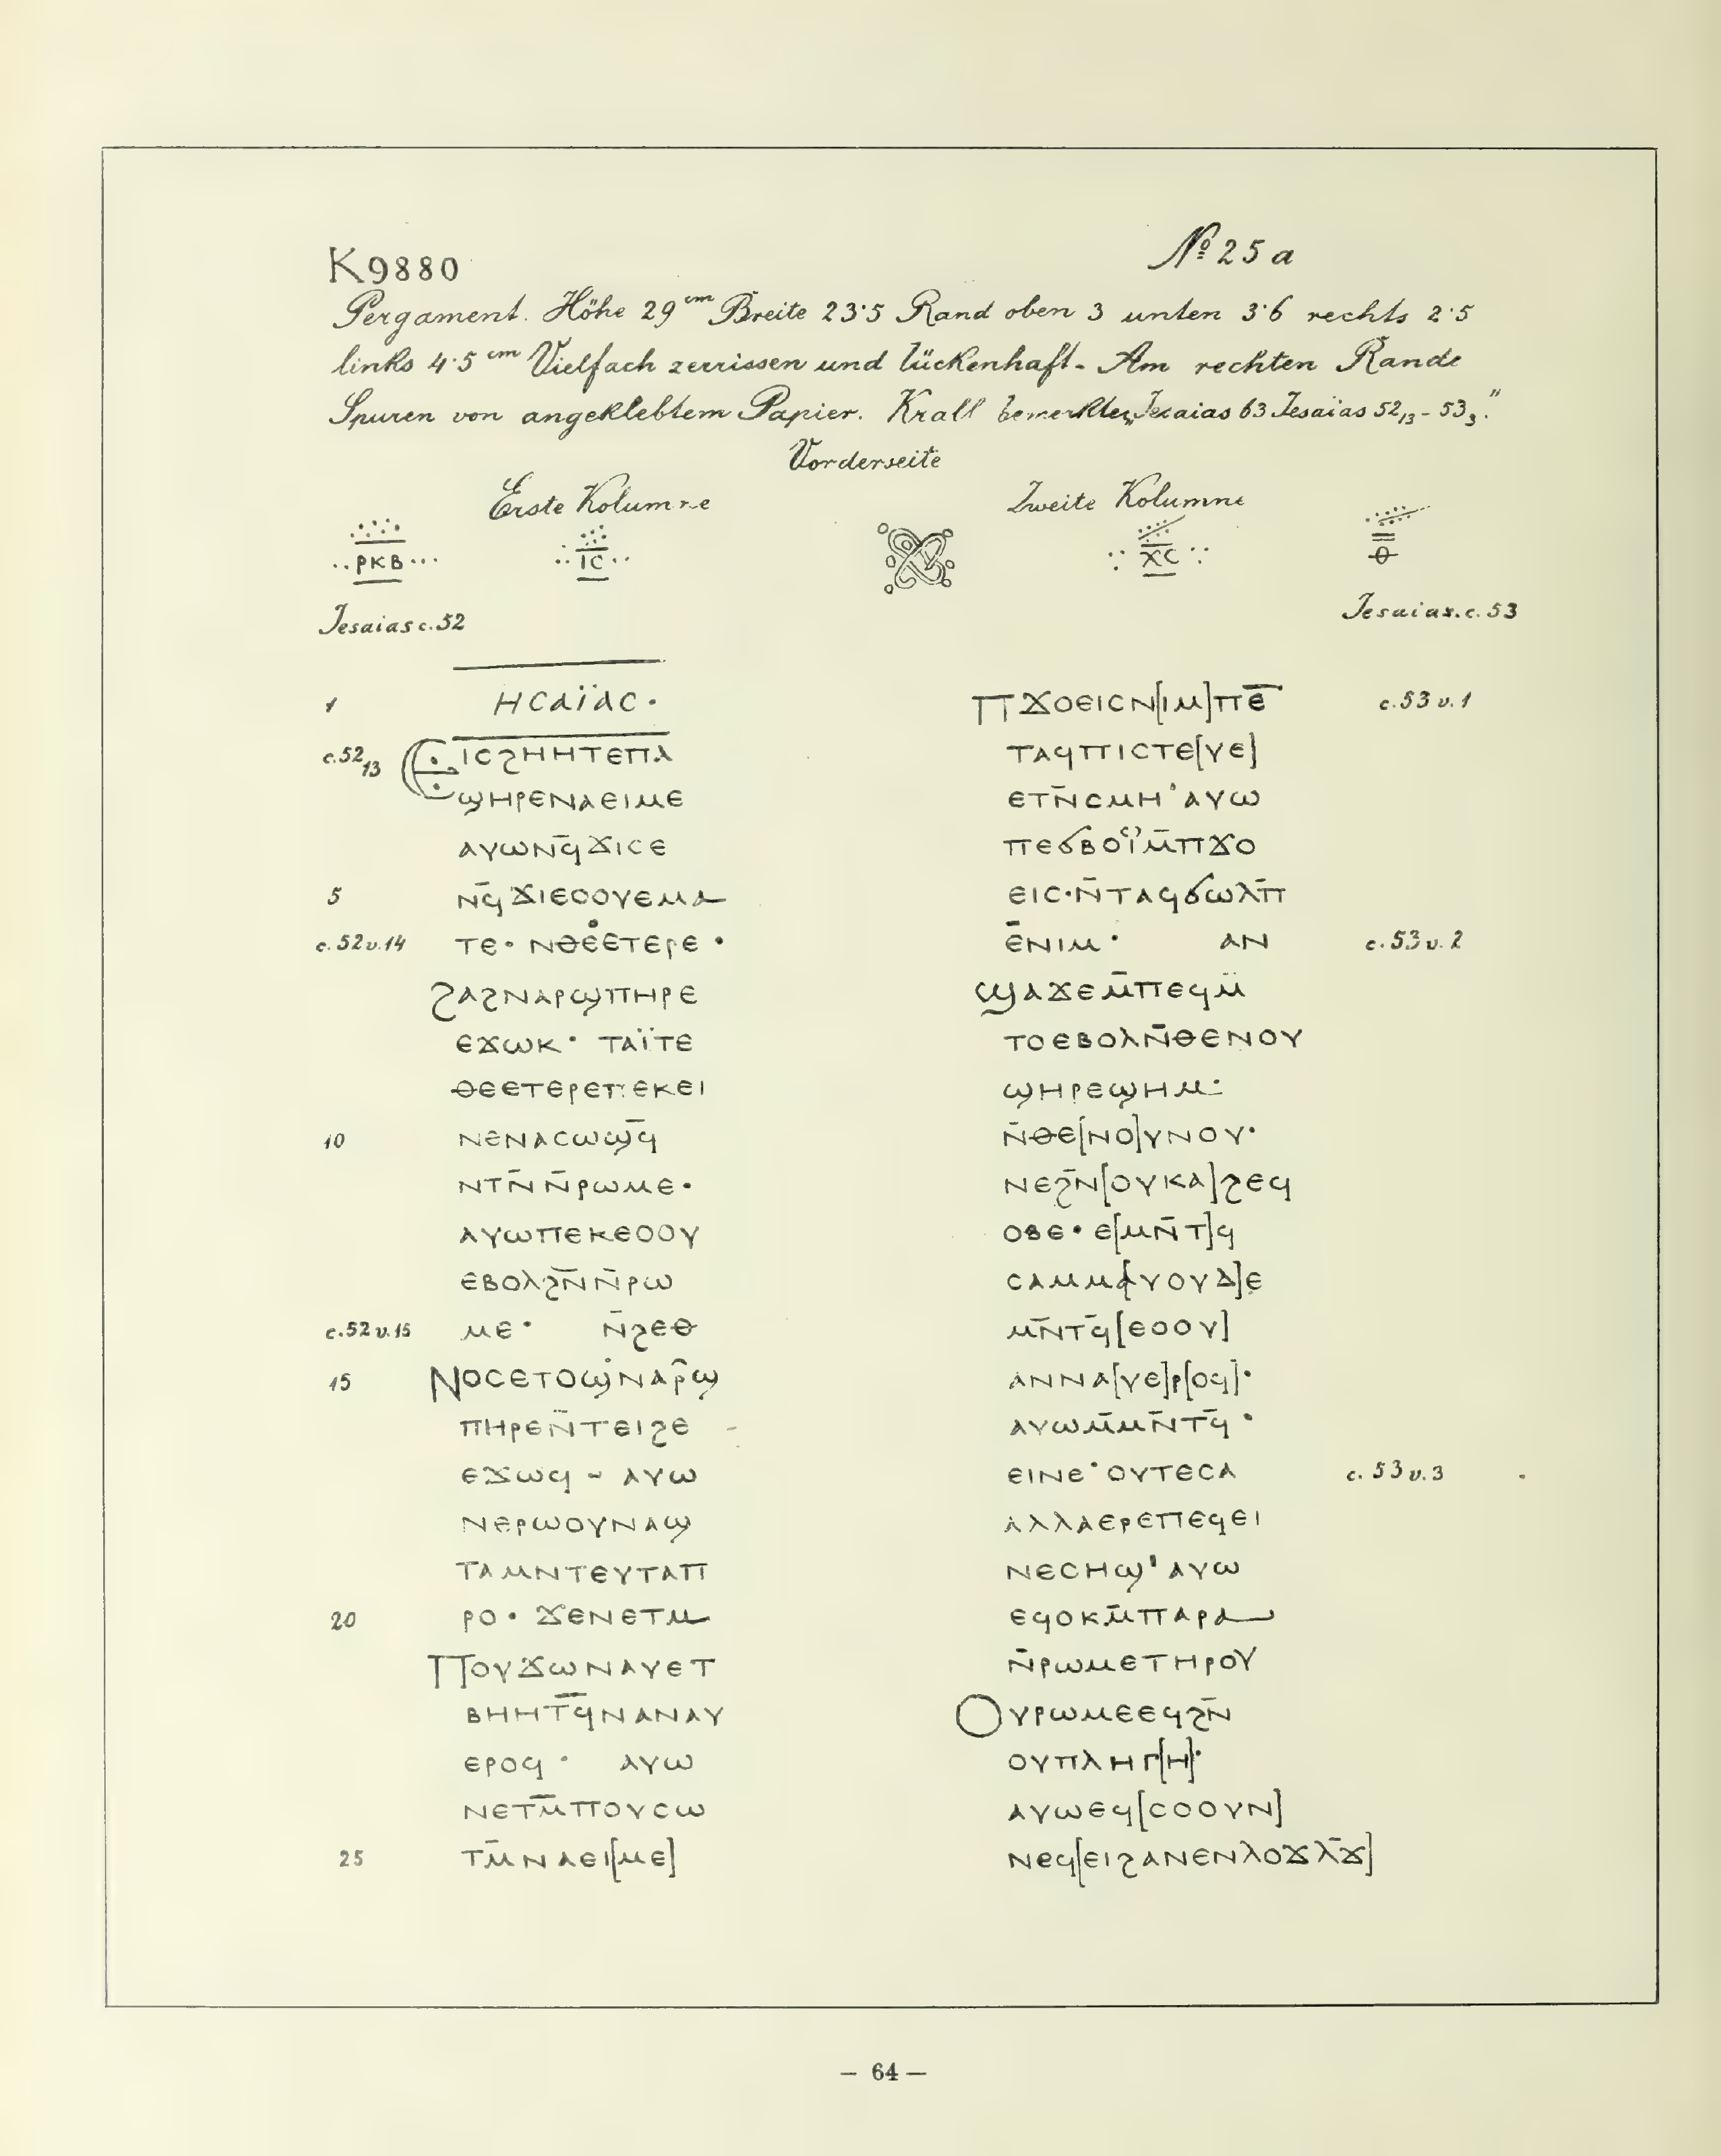 K9880
№ 25 a
Pergament. Höhe 29 cm Breite 23·5 Rand oben 3 unten 3·6 rechts 2·5
links 4·5 cm Vielfach zerrissen und lückenhaft. Am rechten Rande
Spuren von angeklebtem Papier. Krall bemerkte „Jesaias 63 Jesaïas 52,13 - 53,3."
Vorderseite
Erste Kolumne
Zweite Kolumne
ⲣⲕⲃ
ⲓⲥ
ⲭⲥ
ⲑ
Jesaias c. 52
Jesaias. c. 53
1 ⲏⲥⲁⲓ̈ⲁⲥ·
c. 52,13 ⲉⲓⲥϩⲏⲏⲧⲉⲡⲁ
ϣⲏⲣⲉⲛⲁⲉⲓⲙⲉ
ⲁⲩⲱⲛϥ̄ϫⲓⲥⲉ
5 ⲛϥ̄ϫⲓⲉⲟⲟⲩⲉⲙⲁ
c. 52 v. 14 ⲧⲉ· ⲛⲑⲉⲉⲧⲉⲣⲉ ·
ϩⲁϩⲛⲁⲣϣⲡⲏⲣⲉ
ⲉϫⲱⲕ· ⲧⲁⲓ̈ⲧⲉ
ⲑⲉⲉⲧⲉⲣⲉⲡⲉⲕⲉⲓ
10 ⲛⲉⲛⲁⲥⲱϣϥ̄
ⲛⲧⲛ̄ⲛ̄ⲣⲱⲙⲉ·
ⲁⲩⲱⲡⲉⲕⲉⲟⲟⲩ
ⲉⲃⲟⲗϩⲛ̄ⲛ̄ⲣⲱ
c. 52 v. 15 ⲙⲉ· ⲛ̄ϩⲉⲑ
15 ⲛⲟⲥⲉⲧⲟϣⲛⲁⲣ̄ϣ
ⲡⲏⲣⲉⲛ̄ⲧⲉⲓϩⲉ
ⲉϫⲱϥ - ⲁⲩⲱ
ⲛⲉⲣⲱⲟⲩⲛⲁϣ
ⲧⲁⲙⲛⲧⲉⲩⲧⲁⲡ
20 ⲣⲟ· ϫⲉⲛⲉⲧⲙ
ⲡⲟⲩϫⲱⲛⲁⲩⲉⲧ
ⲃⲏⲏⲧϥ̄ⲛⲁⲛⲁⲩ
ⲉⲣⲟϥ· ⲁⲩⲱ
ⲛⲉⲧⲙ̄ⲡⲟⲩⲥⲱ
25 ⲧⲙ̄ⲛⲁⲉⲓ[ⲙⲉ]
ⲡϫⲟⲉⲓⲥⲛ[ⲓⲙ]ⲡⲉ̄ c. 53 v. 1
ⲧⲁϥⲡⲓⲥⲧⲉ[ⲩⲉ]
ⲉⲧⲛ̄ⲥⲙⲏ'ⲁⲩⲱ
ⲡⲉϭⲃⲟⲓ̈ⲙ̄ⲡϫⲟ
ⲉⲓⲥ·ⲛ̄ⲧⲁϥϭⲱⲗⲡ̄
ⲉ̄ⲛⲓⲙ· ⲁⲛ c. 53 v. 2
ϣⲁϫⲉⲙ̄ⲡⲉϥⲙ̄
ⲧⲟⲉⲃⲟⲗⲛ̄ⲑⲉⲛⲟⲩ
ϣⲏⲣⲉϣⲏⲙ·
ⲛ̄ⲑⲉ[ⲛⲟ]ⲩⲛⲟⲩ·
ⲛⲉϩⲛ̄[ⲟⲩⲕⲁ]ϩⲉϥ
ⲟⲃⲉ· ⲉ[ⲙⲛ̄ⲧ]ϥ
ⲥⲁⲙⲙⲁ[ⲩⲟⲩⲇ]ⲉ
ⲙⲛ̄ⲧϥ̄[ⲉⲟⲟⲩ]
ⲁⲛⲛⲁ[ⲩⲉ]ⲣ[ⲟϥ]·
ⲁⲩⲱⲙ̄ⲙⲛ̄ⲧϥ̄·
ⲉⲓⲛⲉ·ⲟⲩⲧⲉⲥⲁ c. 53 v. 3
ⲁⲗⲗⲁⲉⲣⲉⲡⲉϥⲉⲓ
ⲛⲉⲥⲏϣ'ⲁⲩⲱ
ⲉϥⲟⲕⲙ̄ⲡⲁⲣⲁ
ⲛ̄ⲣⲱⲙⲉⲧⲏⲣⲟⲩ
ⲟⲩⲣⲱⲙⲉⲉϥϩⲛ̄
ⲟⲩⲡⲗⲏⲅ[ⲏ]·
ⲁⲩⲱⲉϥ[ⲥⲟⲟⲩⲛ]
ⲛⲉϥ[ⲉⲓϩⲁⲛⲉⲛⲗⲟϫⲗ̄ϫ]
— 64 —